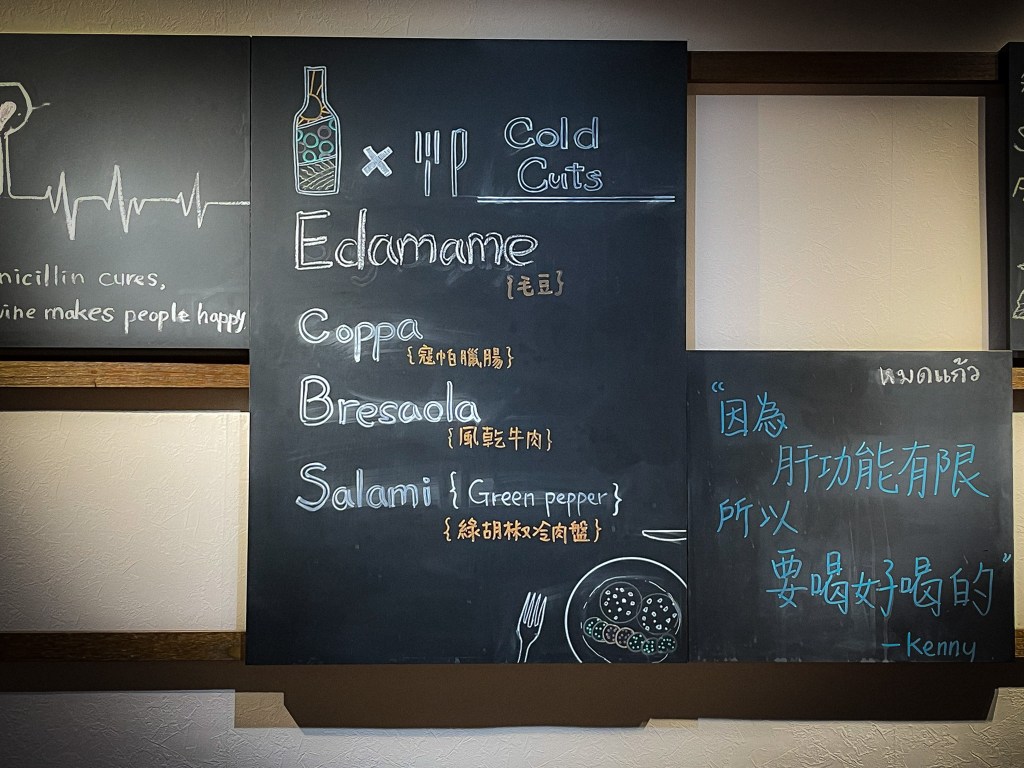 cures,
makes people happy
Cold
Cuts
Edamame
{毛豆}
Coppa
{寇帕臘腸}
Bresaola
{風乾牛肉}
Salami {Green pepper}
{綠胡椒冷肉盤}
หมดแก้ว
“因為
肝功能有限
所以
要喝好喝的”
—Kenny